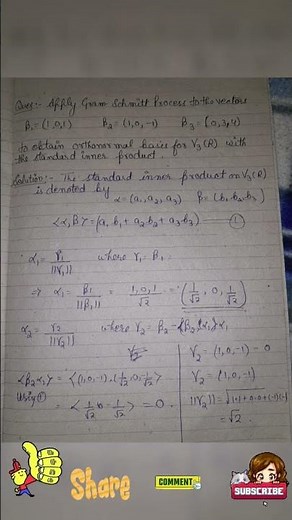 Ques:- Apply Gram Schmitt Process to the vectors
β₁ = (1,0,1) β₂ = (1,0,-1) β₃ = (0,3,4)
to obtain orthonormal basis for V₃(R) with
the standard inner product.
Solution:- The standard inner product on V₃(R)
is denoted by
α = (a₁, a₂, a₃) β = (b₁, b₂, b₃)
<α, β> = (a₁b₁ + a₂b₂ + a₃b₃) — ①
α₁ = γ₁/||γ₁|| where γ₁ = β₁
⇒ α₁ = β₁/||β₁|| = 1,0,1/√2 = (1/√2, 0, 1/√2)
α₂ = γ₂/||γ₂|| where γ₂ = β₂ - <β₂,α₁>α₁
<β₂ α₁> = <(1,0,-1), (1/√2, 0, 1/√2)>
Using ①
= <1/√2 0 - 1/√2> = 0
γ₂ = (1,0,-1) - 0
γ₂ = (1,0,-1)
||γ₂|| = √
= √2
Share
COMMENT
SUBSCRIBE